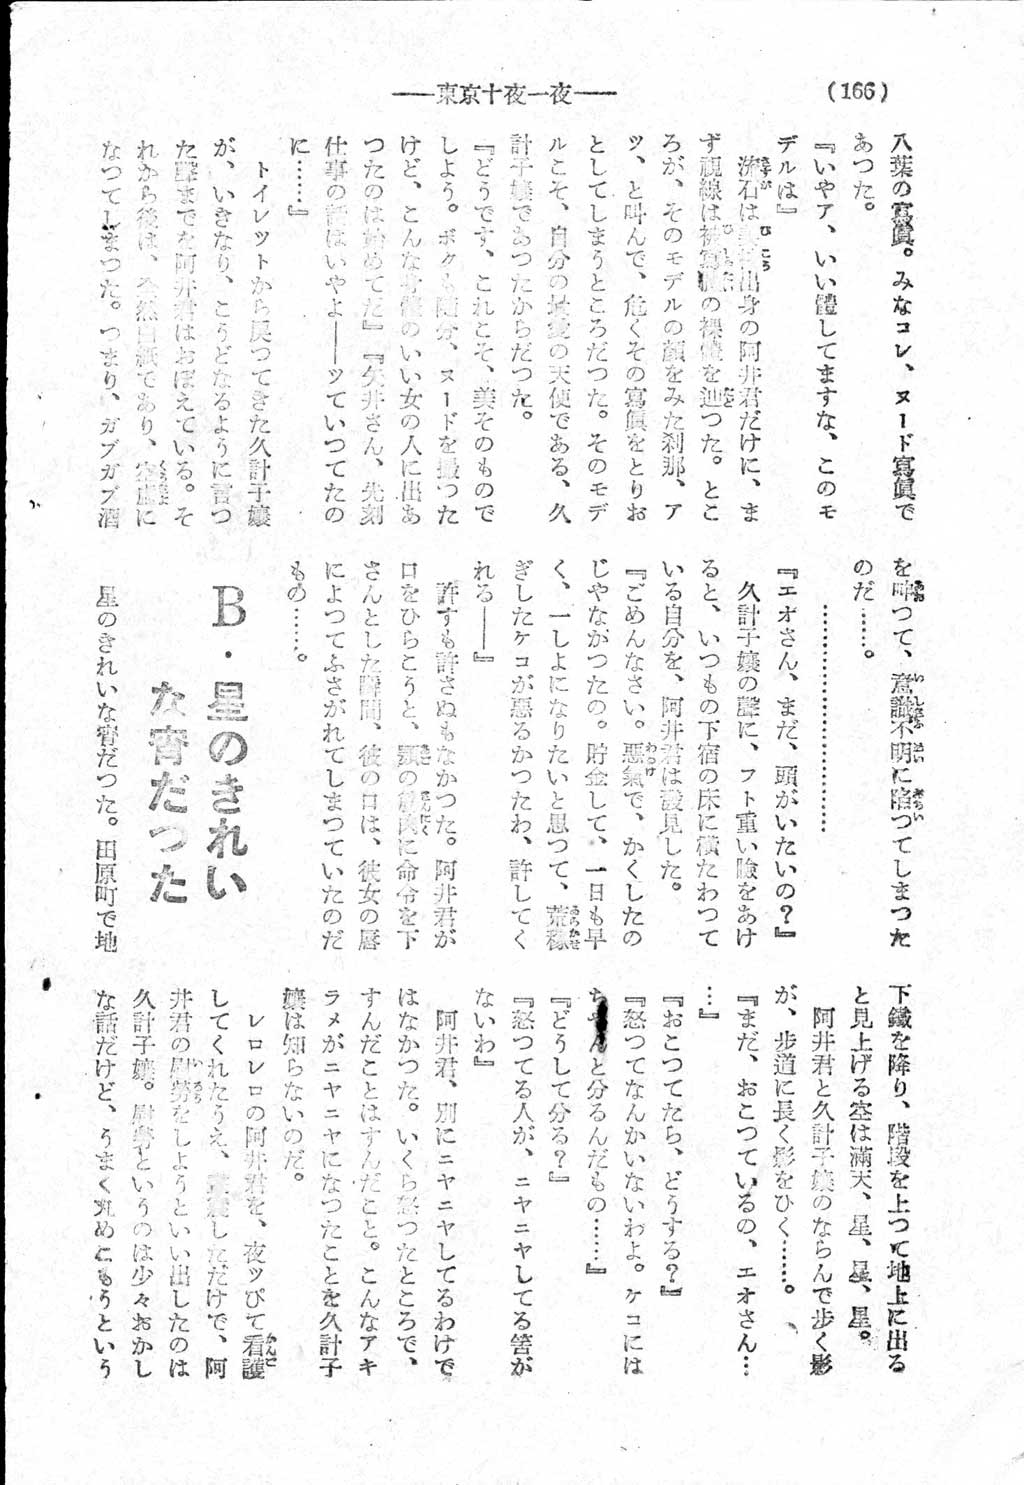 (166)
──東京十夜一夜──
八葉の寫眞。みなコレ、ヌード寫眞で
あつた。
『いやア、いい體してますな、このモ
デルは』
流石は美校出身の阿井君だけに、ま
ず視線は被寫體の裸體を辿つた。とこ
ろが、そのモデルの顔をみた刹那、ア
ツ、と叫んで、危くその寫眞をとりお
としてしまうところだつた。そのモデ
ルこそ、自分の最愛の天使である、久
計子孃であつたからだつた。
『どうです、これこそ、美そのもので
しよう。ボクも隨分、ヌードを撮つた
けど、こんな身體のいい女の人に出あ
つたのは始めてだ』『矢井さん、先刻
仕事の話はいやよ──ツていつてたの
に……』
トイレツトから戻つてきた久計子孃
が、いきなり、こうどなるように言つ
た聲までを阿井君はおぼえている。そ
れから後は、全然白紙であり、空虛に
なつてしまつた。つまり、ガブガブ酒
を呷つて、意識不明に陷つてしまつた
のだ……。
………………………………
『エオさん、まだ、頭がいたいの？』
久計子孃の聲に、フト重い瞼をあけ
ると、いつもの下宿の床に橫たわつて
いる自分を、阿井君は發見した。
『ごめんなさい。惡氣で、かくしたの
じやなかつたの。貯金して、一日も早
く、一しよになりたいと思つて、荒稼
ぎしたケコが惡るかつたわ、許してく
れる──』
許すも許さぬもなかつた。阿井君が
口をひらこうと、顎の筋肉に命令を下
さんとした瞬間、彼の口は、彼女の唇
によつてふさがれてしまつていたのだ
もの……。
B・星のきれい
な宵だつた
星のきれいな宵だつた。田原町で地
下鐵を降り、階段を上つて地上に出る
と見上げる空は滿天、星、星、星。
阿井君と久計子孃のならんで步く影
が、步道に長く影をひく……。
『まだ、おこつているの、エオさん…
…』
『おこつてたら、どうする？』
『怒つてなんかいないわよ。ケコには
ちやんと分るんだもの……』
『どうして分る？』
『怒つてる人が、ニヤニヤしてる筈が
ないわ』
阿井君、別にニヤニヤしてるわけで
はなかつた。いくら怒つたところで、
すんだことはすんだこと。こんなアキ
ラメがニヤニヤになつたことを久計子
孃は知らないのだ。
レロレロの阿井君を、夜ツぴて看護
してくれたうえ、しただけで、阿
井君の慰勞をしようといい出したのは
久計子孃。慰勞というのは少々おかし
な話だけど、うまく丸めこもうという